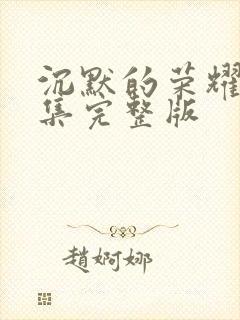 沉默的荣耀
集完整版
趙婀娜